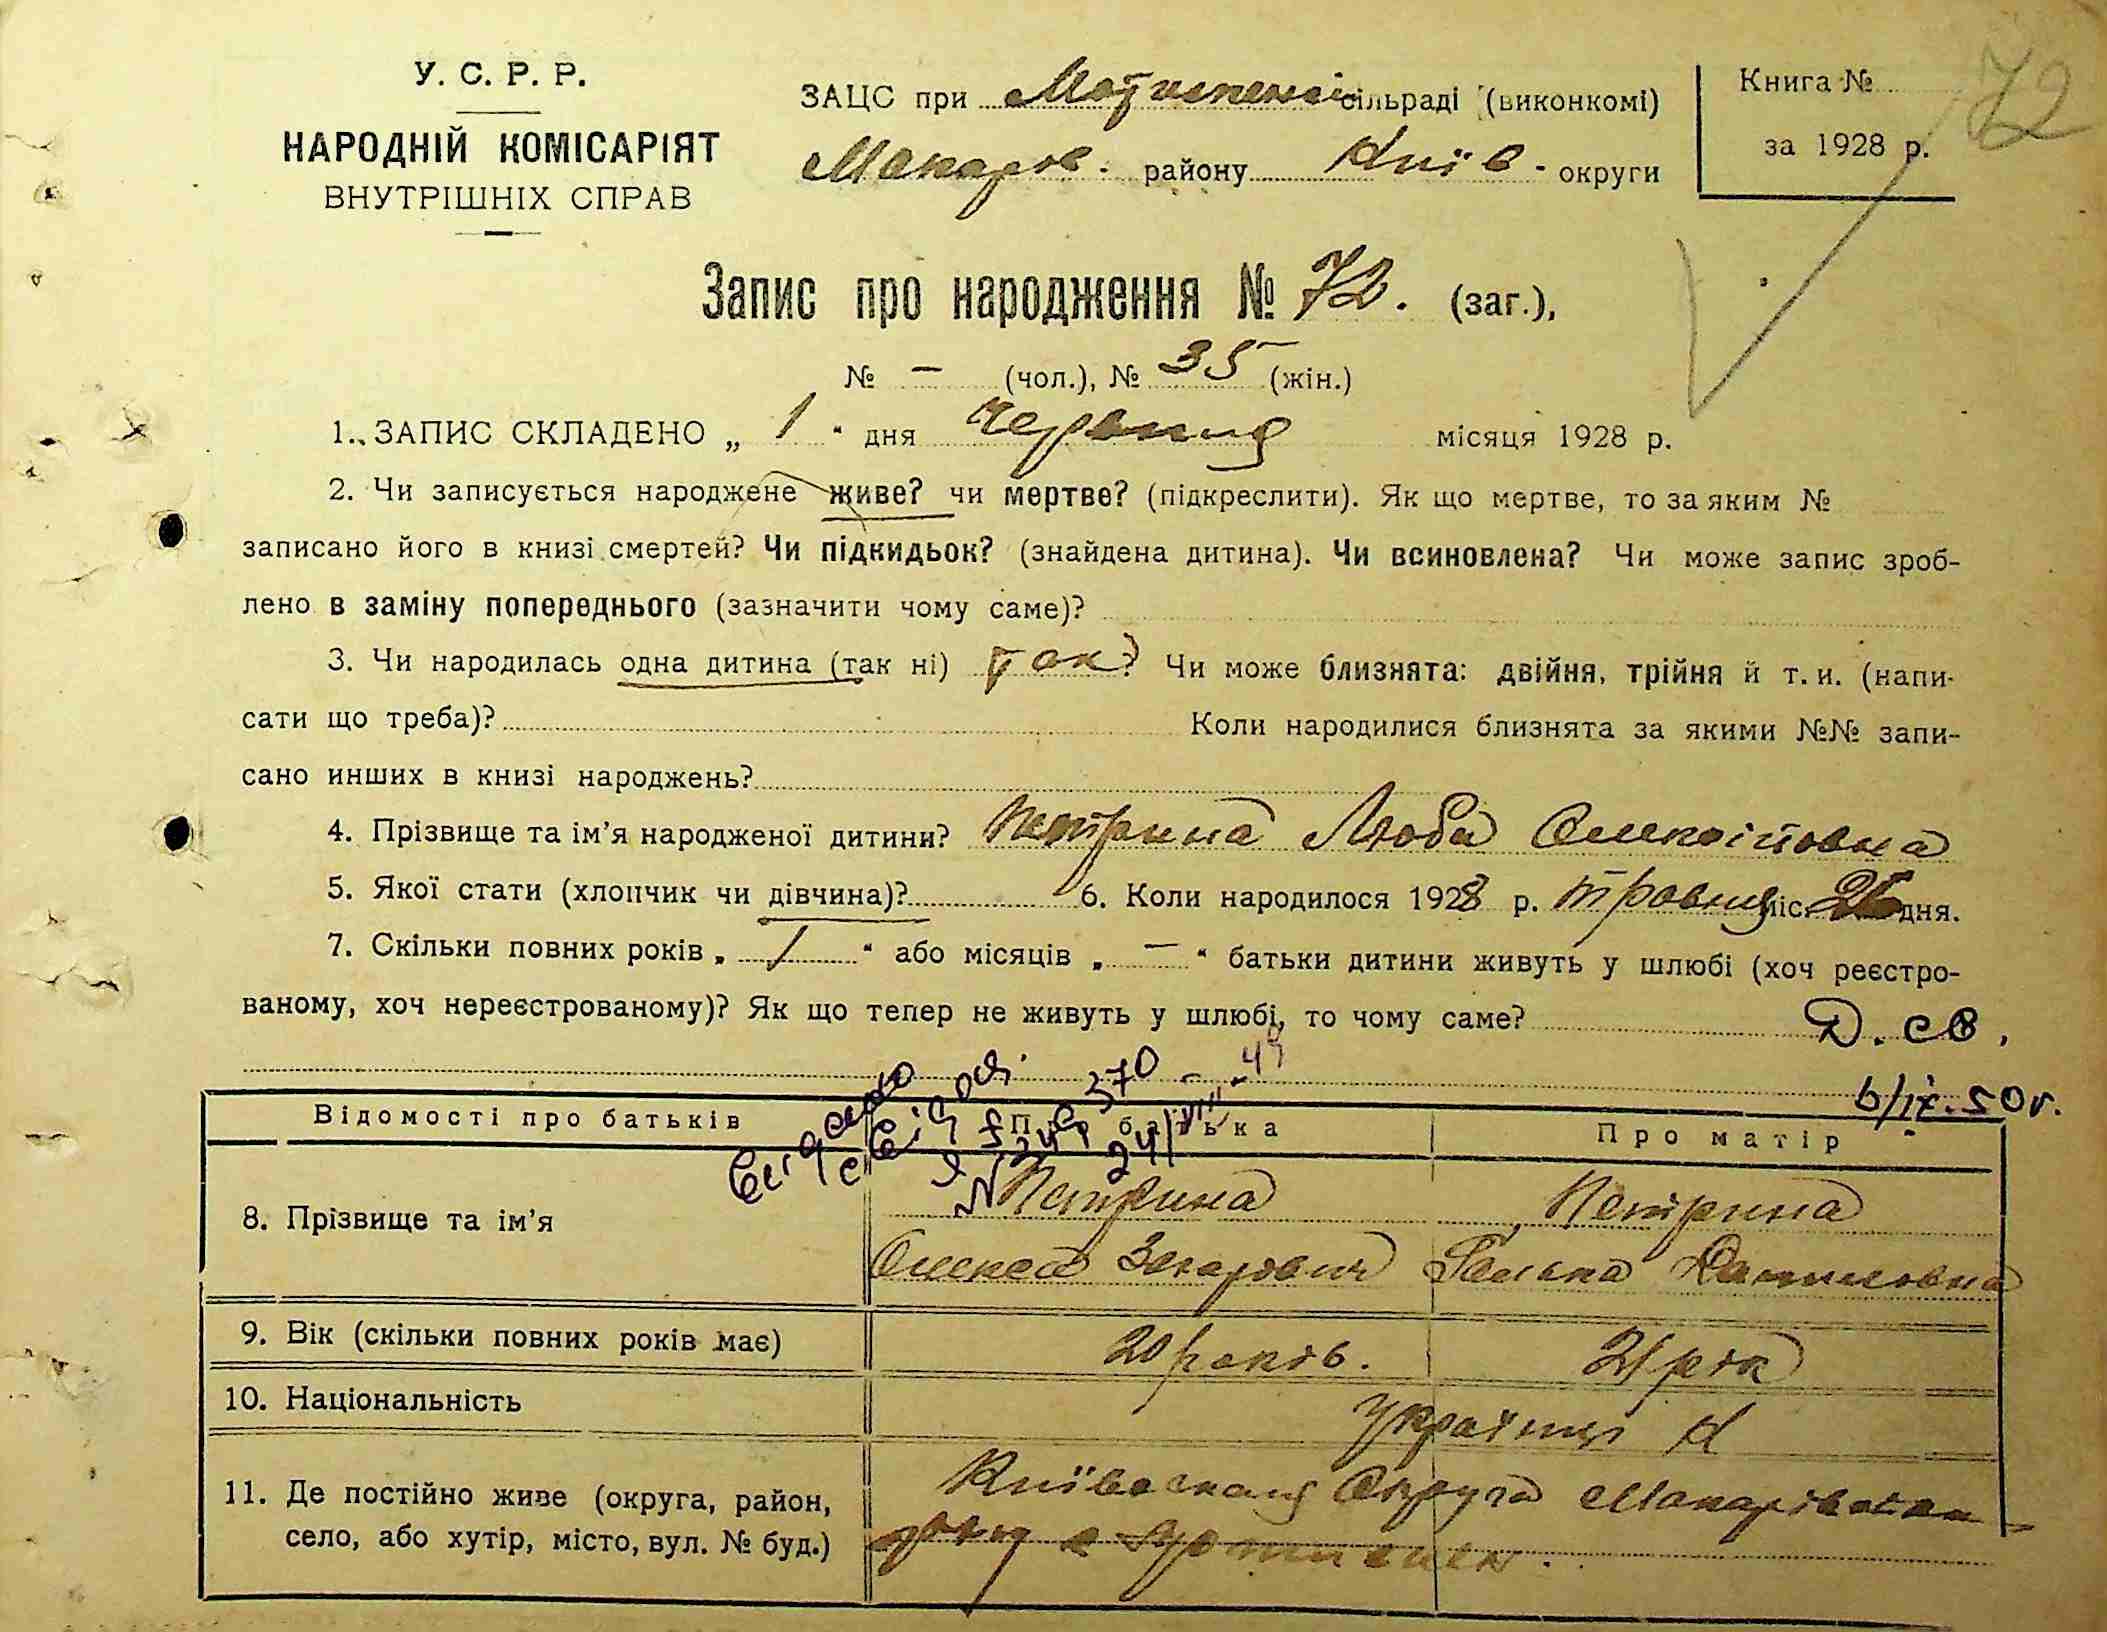 У. С. Р. Р.
НАРОДНІЙ КОМІСАРІЯТ
ВНУТРІШНІХ СПРАВ
ЗАЦС при сільраді (виконкомі)
Макарів. району Київ - округи
Книга № 72
за 1928 р.
Запис про народження № 72. (заг.),
№ — (чол.), № 35 (жін.)
1. ЗАПИС СКЛАДЕНО „ 1 " дня Червния місяця 1928 р.
2. Чи записується народжене живе? чи мертве? (підкреслити). Як що мертве, то за яким №
записано його в книзі смертей? Чи підкидьок? (знайдена дитина). Чи всиновлена? Чи може запис зроб-
лено в заміну попереднього (зазначити чому саме)?
3. Чи народилась одна дитина (так ні) так? Чи може близнята: двійня, трійня й т. и. (напи-
сати що треба)? Коли народилися близнята за якими №№ запи-
сано инших в книзі народжень?
4. Прізвище та ім’я народженої дитини? Петрина Люба Олексіївна
5. Якої стати (хлопчик чи дівчина)? 6. Коли народилося 1928 р. травня міс. 26 дня.
7. Скільки повних років „ 1 " або місяців „ — " батьки дитини живуть у шлюбі (хоч реєстро-
ваному, хоч нереєстрованому)? Як що тепер не живуть у шлюбі, то чому саме? Д. св,
6/IX.50 г.
Відомості про батьків Про батька Про матір
8. Прізвище та ім’я Петрина Петрина
Олекса Захарович Галька Даниловна
9. Вік (скільки повних років має) 20 років. 21 рік
10. Національність Українці
11. Де постійно живе (округа, район, Київська Округа Макарівськ
село, або хутір, місто, вул. № буд.)